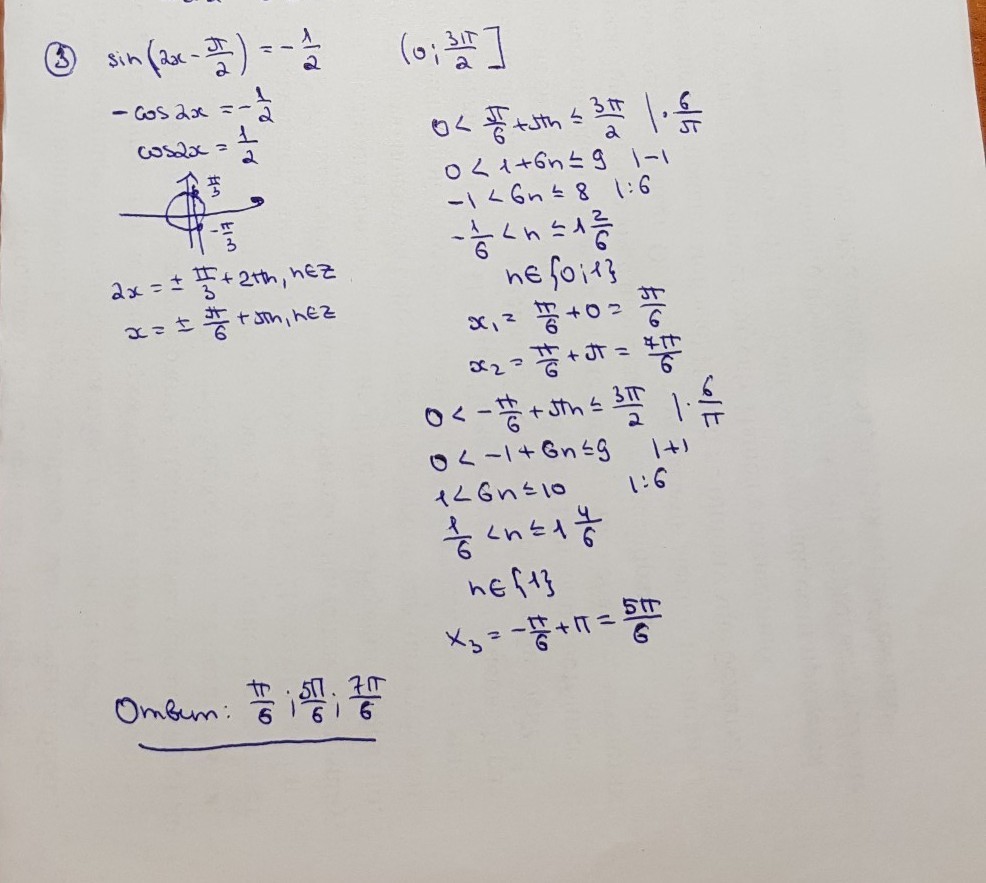 ③ sin(2x - π/2) = -1/2 (0; 3π/2]
-cos2x = -1/2
cos2x = 1/2
π/3
-π/3
2x = ± π/3 + 2πn, n∈Z
x = ± π/6 + πn, n∈Z
0 < π/6 + πn ≤ 3π/2 | · 6/π
0 < 1 + 6n ≤ 9 | -1
-1 < 6n ≤ 8 | :6
-1/6 < n ≤ 1 2/6
n∈{0;1}
x₁ = π/6 + 0 = π/6
x₂ = π/6 + π = 7π/6
0 < -π/6 + πn ≤ 3π/2 | · 6/π
0 < -1 + 6n ≤ 9 | +1
1 < 6n ≤ 10 | :6
1/6 < n ≤ 1 4/6
n∈{1}
x₃ = -π/6 + π = 5π/6
Ответ: π/6 ; 5π/6 ; 7π/6